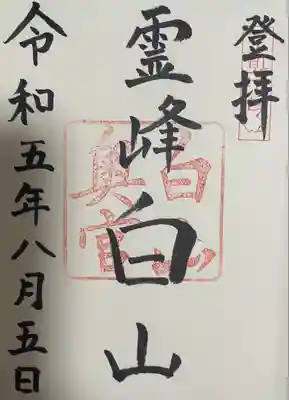 登拝
霊峰白山
白山
奥宮
令和五年八月五日